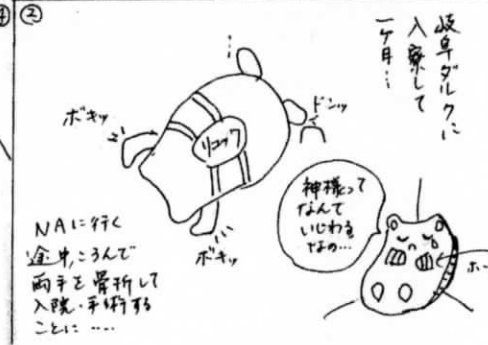 ②
岐阜ダルクに
入寮して
一ヶ月…
ドンッ
ボキッ
リュック
ボキッ
NAに行く
途中、ころんで
両手を骨折して
入院・手術する
ことに……
神様って
なんて
いじわる
なの…
ホー